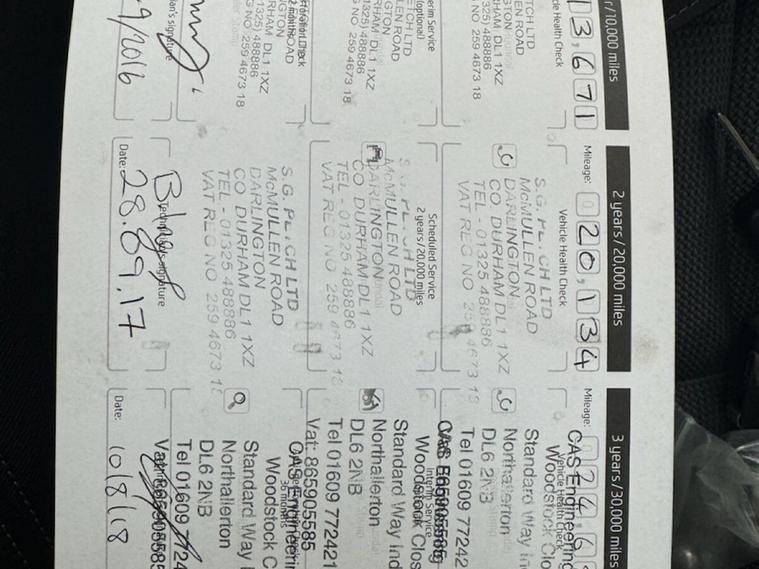 r/10,000 miles
13,671
Health Check
TCH LTD
EN ROAD
GTON
RHAM DL1 1XZ
01325) 488886
NO 259 4673 18
erim Service
(optional)
ECH LTD
LEN ROAD
GTON
RHAM DL1 1XZ
01325) 488886
NO 259 4673 18
ROAD
GTON
RHAM DL1 1XZ
01325) 488886
G NO 259 4673 18
ian's signature
9/2016
2 years/20,000 miles
Mileage: 020,134
Vehicle Health Check
S.G. PETCH LTD
McMULLEN ROAD
DARLINGTON
CO DURHAM DL1 1XZ
TEL - 01325 488886
VAT REG NO 259 4673 18
Scheduled Service
2 years/20,000 miles
S.G. PETCH LTD
McMULLEN ROAD
DARLINGTON
CO DURHAM DL1 1XZ
TEL - 01325 488886
VAT REG NO 259 4673 18
S.G. PETCH LTD
McMULLEN ROAD
DARLINGTON
CO DURHAM DL1 1XZ
TEL - 01325 488886
VAT REG NO 259 4673 18
Technician's signature
Date: 28.09.17
3 years/30,000 miles
Mileage: 024,6
Vehicle Health Check
CAS Engineering
Woodstock Clo
Standard Way In
Northallerton
DL6 2NB
Tel 01609 77242
Vat: 865905585
Interim Service
CAS Engineering
Woodstock Clos
Standard Way Ind
Northallerton
DL6 2NB
Tel 01609 772421
Vat: 865905585
36 months
CAS Engineerin
Woodstock C
Standard Way
Northallerton
DL6 2NB
Tel 01609 7724
Vat: 865905585
Date: 10/8/18